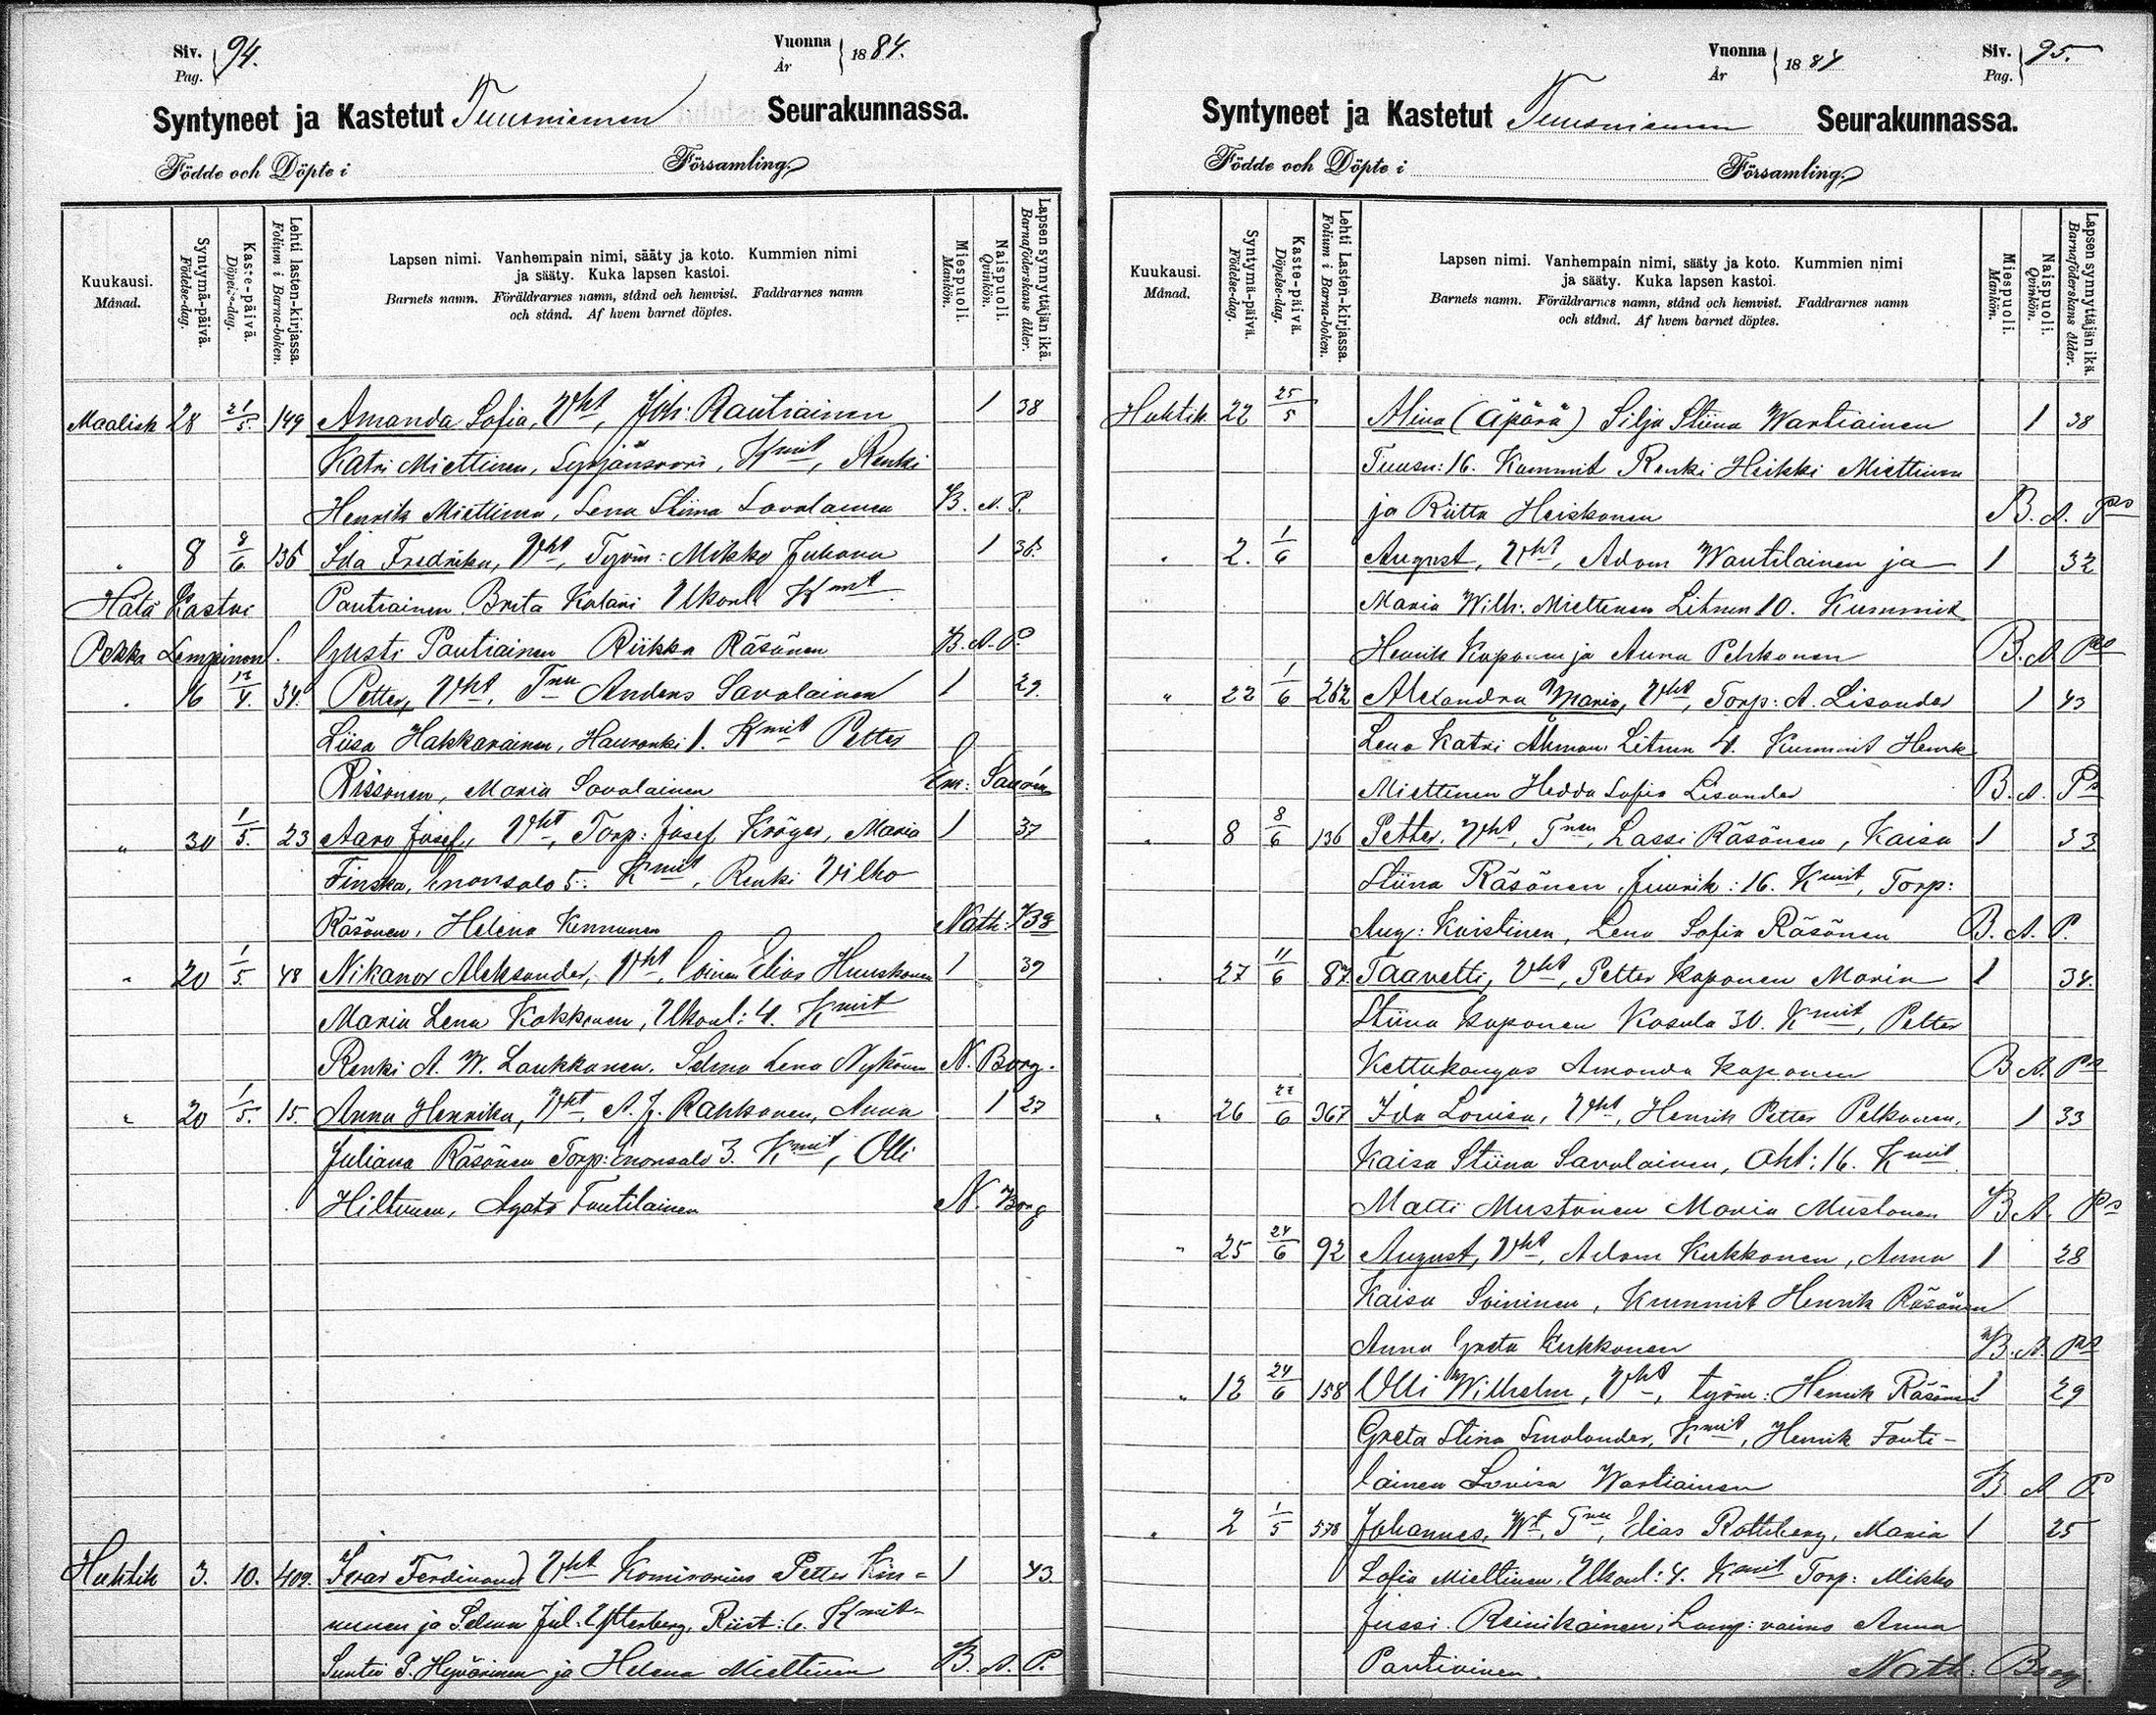 Siv. Pag. } 94.
Vuonna År } 1884.
Syntyneet ja Kastetut Tuusniemen Seurakunnassa.
Födde och Döpte i Församling.
Kuukausi. Månad.
Syntymä-päivä. Födelse-dag.
Kaste-päivä. Döpelse-dag.
Lehti lasten-kirjassa. Folium i Barna-boken.
Lapsen nimi. Vanhempain nimi, sääty ja koto. Kummien nimi
ja sääty. Kuka lapsen kastoi.
Barnets namn. Föräldrarnes namn, stånd och hemvist. Faddrarnes namn
och stånd. Af hvem barnet döptes.
Miespuoli. Mankön.
Naispuoli. Qvinkön.
Lapsen synnyttäjän ikä. Barnaföderskans ålder.
Maalisk 28 21/5 149 Amanda Sofia, Vht, Joh: Rautiainen 1 38
Katri Miettinen, Syvjänsaari, Kmit, Renki
Henrik Miettinen, Lena Stiina Savolainen B. A. P.
" 8 8/6 136 Ida Fredrika, Vht, Työm: Mikko Juhana 1 36
Hätä Kastoi Pautiainen Brita Kolari Ukonl. Kmit
Pekka Lempinen Gusti Pautiainen Riikka Räsänen B. A. P.
" 16 13/4 34 Petter, Vht, Tnu Anders Savolainen 1 29.
Liisa Hakkarainen, Hauranki 1. Kmit Petter
Rissonen, Maria Savolainen Em: Sauvén
" 30 1/5. 23 Aaro Josef, Vht, Torp: Josef Kröger, Maria 1 37
Finska, Enonsalo 5: Kmit, Renki Vilho
Räsänen, Helena Kinnunen Nath: Bg
" 20 1/5. 48 Nikanor Aleksander, Vht, Elias Huuskonen 1 39
Maria Lena Kokkonen, Ukonl: 4. Kmit
Renki A. W. Laukkanen. Selma Lena Nykänen N. Borg.
" 20 1/5. 15. Anna Henrika, Vht, A. J. Rahkonen, Anna 1 27
Juliana Räsänen Torp: Enonsalo 3. Kmit, Olli
Hiltunen, Agata Tantilainen N. Borg
Huhtik 3. 10. 409. Ivar Ferdinand Vht Komisarius Petter Kin= 1 43.
nunen ja Selma Jul. Ytterberg, Riist: 6. Kmit
Suntio P. Hyvärinen ja Helena Miettinen B. A. P.
Vuonna År } 1884
Siv. Pag. } 95.
Syntyneet ja Kastetut Tuusniemen Seurakunnassa.
Födde och Döpte i Församling.
Kuukausi. Månad.
Syntymä-päivä. Födelse-dag.
Kaste-päivä. Döpelse-dag.
Lehti Lasten-kirjassa. Folium i Barna-boken.
Lapsen nimi. Vanhempain nimi, sääty ja koto. Kummien nimi
ja sääty. Kuka lapsen kastoi.
Barnets namn. Föräldrarnes namn, stånd och hemvist. Faddrarnes namn
och stånd. Af hvem barnet döptes.
Miespuoli. Mankön.
Naispuoli. Qvinkön.
Lapsen synnyttäjän ikä. Barnaföderskans ålder.
Huhtik. 22 25/5 Alina (äpärä) Silja Stiina Wartiainen 1 38
Tuusn: 16. Kummit Renki Heikki Miettinen
ja Riitta Heiskanen B. A. Prs
" 2. 1/6 August, Vht, Adam Wantilainen ja 1 32
Maria Wilh: Miettinen Litmn 10. Kummit
Henrik Koponen ja Anna Pehkonen B. A. Prs
" 22 1/6 262 Alexandra Maria, Vht, Torp: A. Lisander 1 43
Lena Katri Åhman Litmn 4. Kummit Henrik
Miettinen Hedda Sofia Lisander B. A. Ps
" 8 8/6 136 Petter, Vht, Tnen Lassi Räsänen, Kaisa 1 33
Stiina Räsänen Juurik: 16. Kmit, Torp:
Aug: Kuistinen, Lena Sofia Räsänen B. A. P.
" 27 11/6 87 Taavetti, Vht, Petter Koponen Maria 1 34.
Stiina Koponen Kosula 30. Kmit, Petter
Kettukangas Amanda Koponen B A. Prs
" 26 22/6 367 Ida Lovisa, Vht, Henrik Petter Pelkonen, 1 33
Kaisa Stiina Savolainen, Oht: 16. Kmit
Matti Mustonen Maria Mustonen B A. Ps
" 25 24/6 92 August, Vht, Adam Kukkonen, Anna 1 28
Kaisa Soininen, Kummit Henrik Räsänen
Anna Greta Kukkonen B. A. Prs
" 12 24/6 158 Olli Wilhelm, Vht, työm: Henrik Räsänen 1 29
Greta Stina Smolander, Kmit, Henrik Tanti-
lainen Lovisa Wartiainen B A P.
" 2 1/5 578 Johannes, Wt, Tnu, Elias Rothberg, Maria 1 25
Sofia Miettinen, Ukonl: 4. Kmit Torp: Mikko
Jussi Reinikainen, Lamp: vaimo Anna
Pautiainen. Nath: Borg.